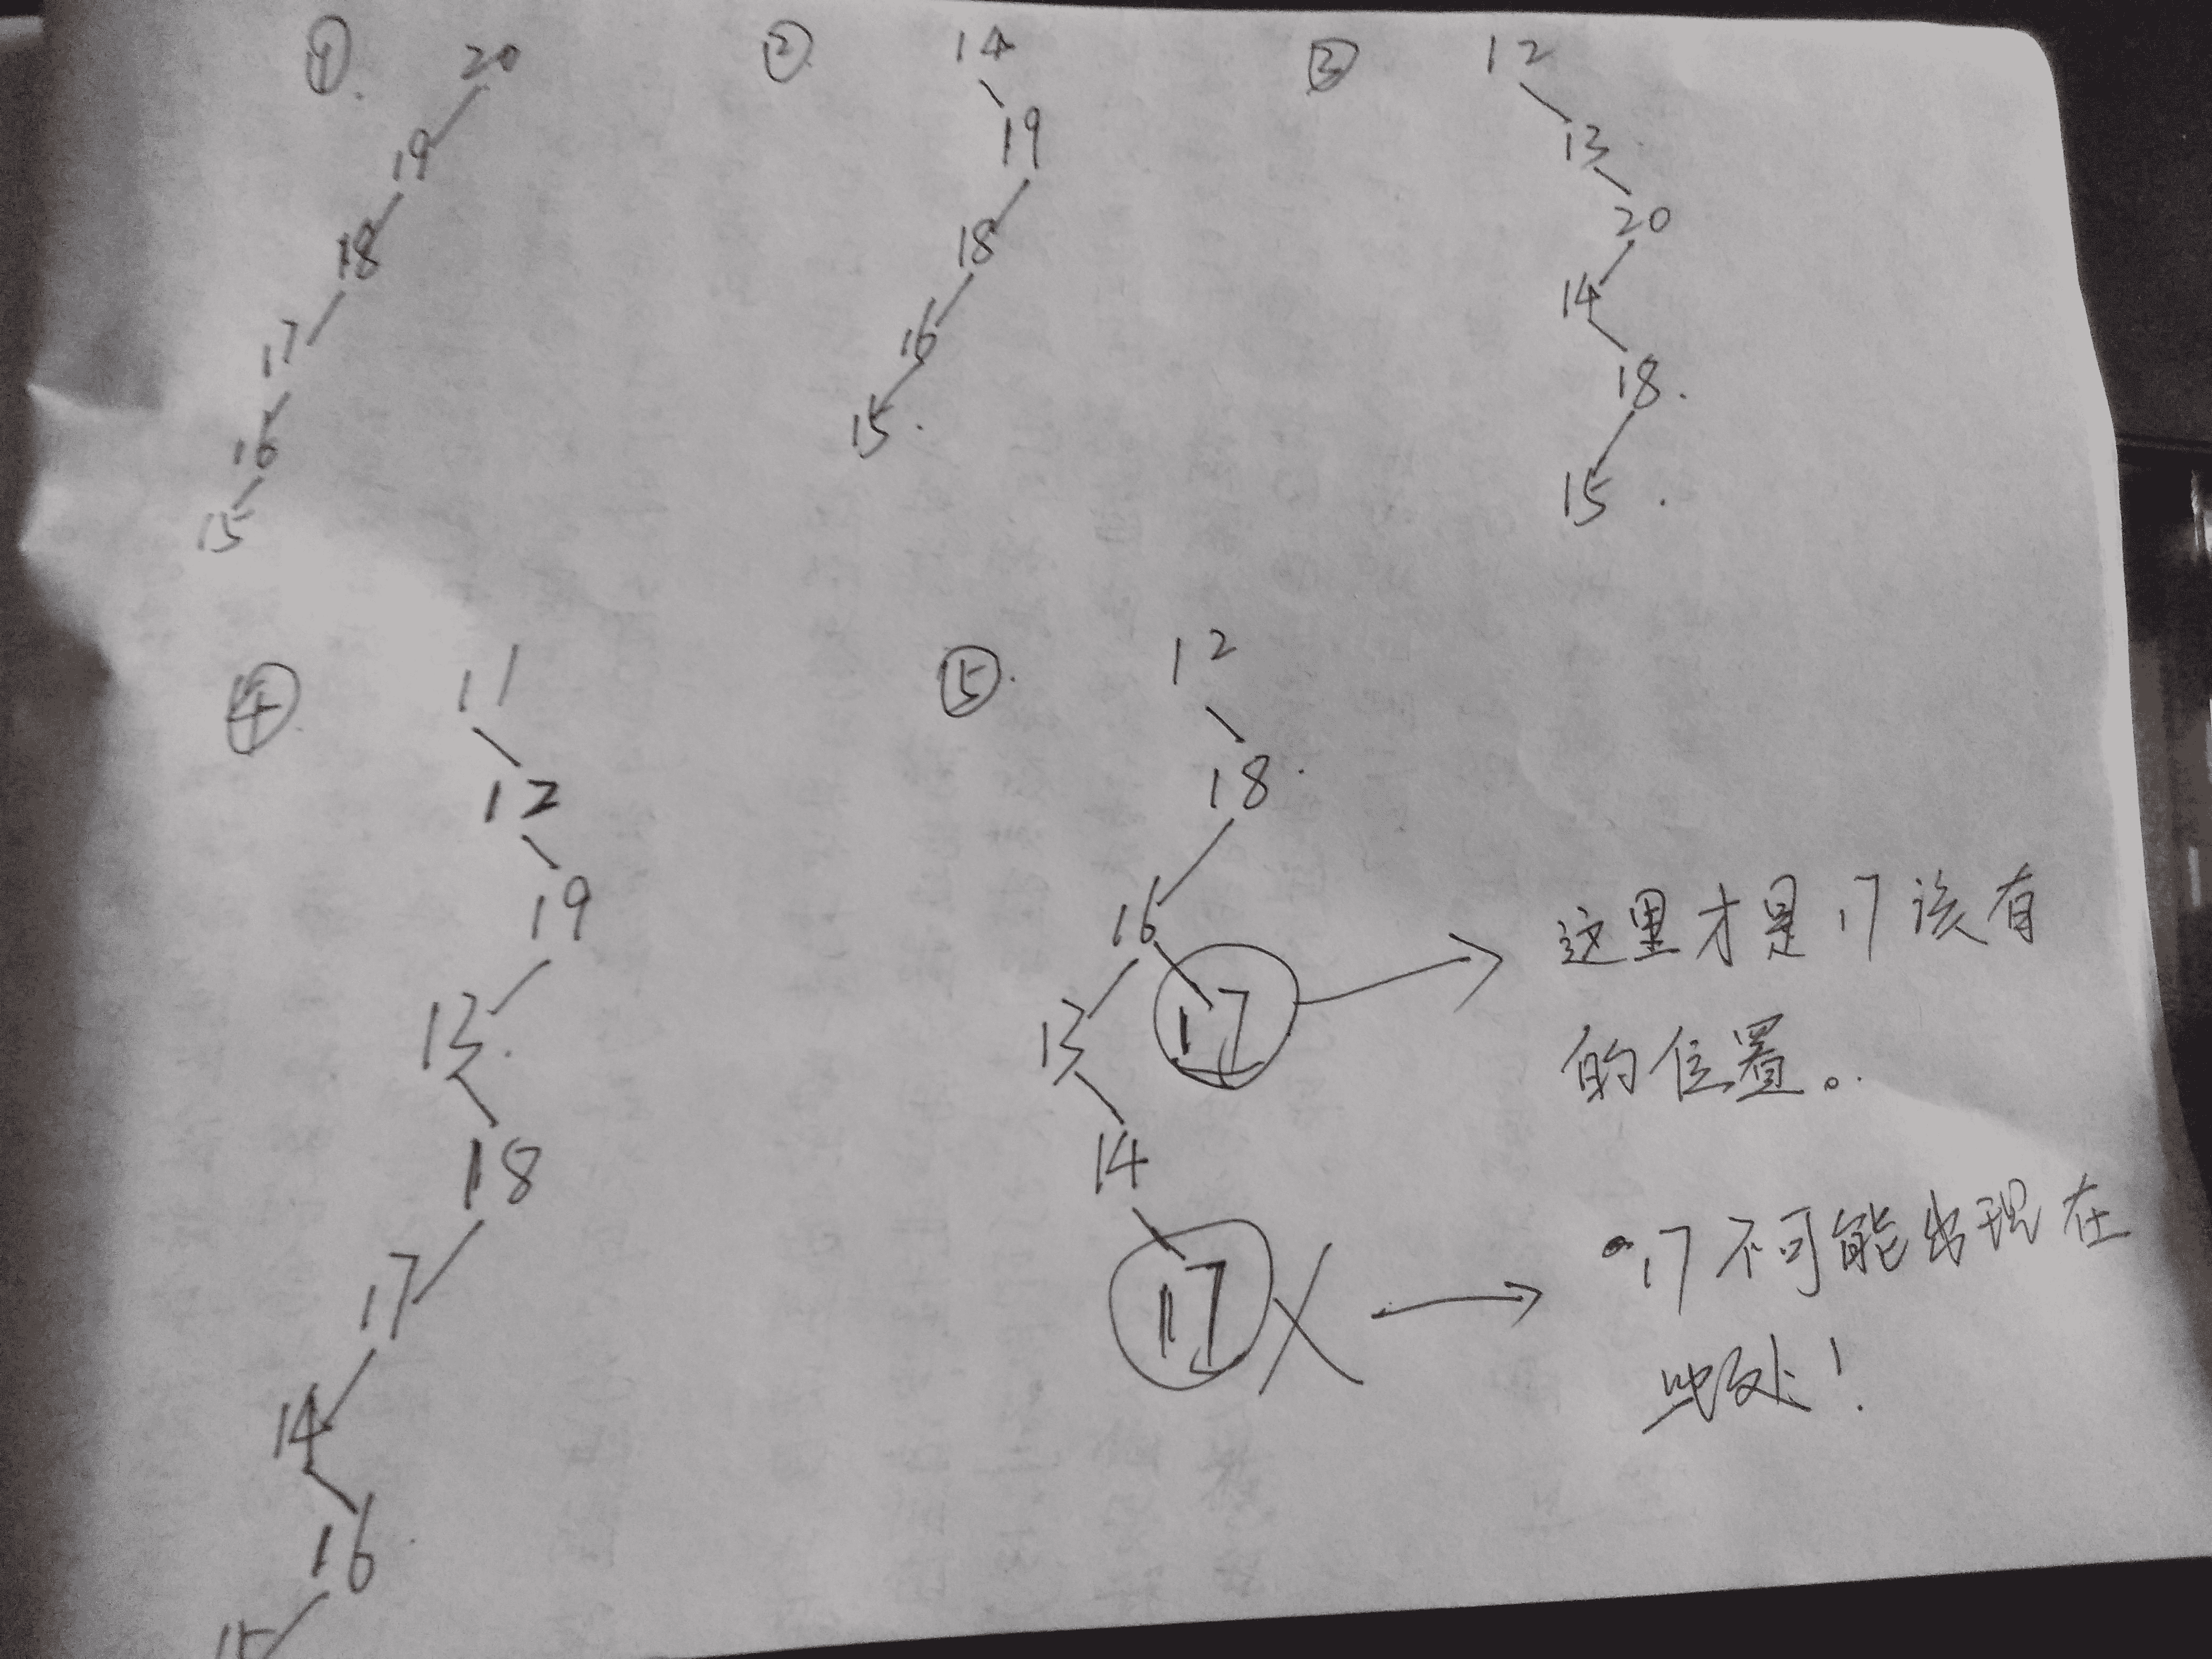 ① 20
19
18
17
16
15
② 14
19
18
16
15.
③ 12
13
20
14
18.
15.
④ 11
12
19
13.
18
17
14
16
15
⑤. 12
18.
16
13 17
14
17 X
这里才是17该有
的位置。
17不可能出现在
此处!